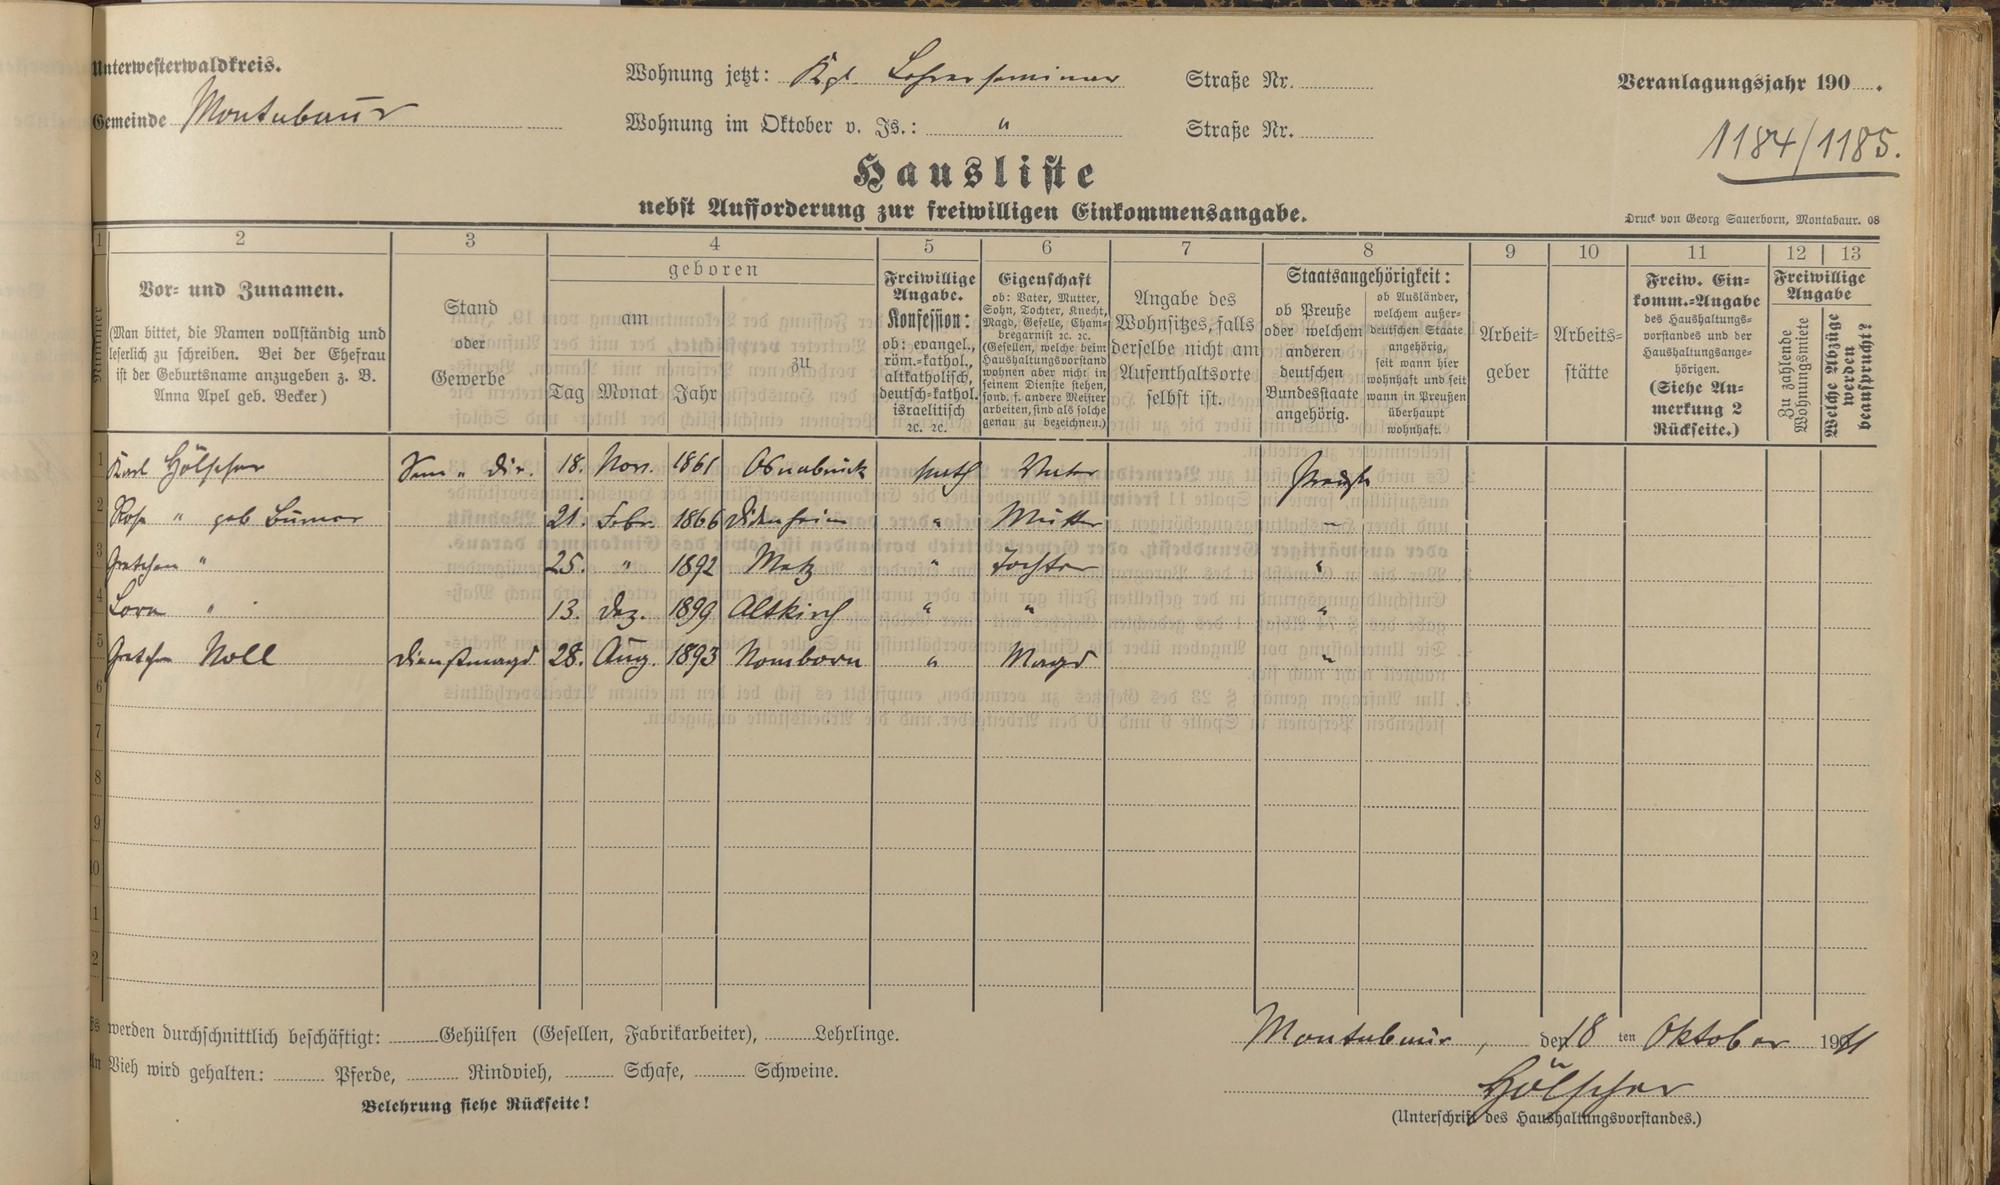 Unterwesterwaldkreis.
Wohnung jetzt: Kgl. Lehrerseminar Straße Nr.
Veranlagungsjahr 190 .
Gemeinde Montabaur
Wohnung im Oktober v. Js.: " Straße Nr.
1184/1185.
Hausliste
nebst Aufforderung zur freiwilligen Einkommensangabe.
Druck von Georg Sauerborn, Montabaur. 08
1 2 3 4 5 6 7 8 9 10 11 12 13
Nummer
Vor- und Zunamen.
(Man bittet, die Namen vollständig und
leserlich zu schreiben. Bei der Ehefrau
ist der Geburtsname anzugeben z. B.
Anna Apel geb. Becker)
Stand
oder
Gewerbe
geboren
am
Tag Monat Jahr
zu
Freiwillige
Angabe.
Konfession:
ob: evangel.,
röm.-kathol.,
altkatholisch,
deutsch-kathol.
israelitisch
ꝛc. ꝛc.
Eigenschaft
ob: Vater, Mutter,
Sohn, Tochter, Knecht,
Magd, Geselle, Cham-
bregarnist ꝛc. ꝛc.
(Gesellen, welche beim
Haushaltungsvorstand
wohnen aber nicht in
seinem Dienste stehen,
sond. f. andere Meister
arbeiten, sind als solche
genau zu bezeichnen.)
Angabe des
Wohnsitzes, falls
derselbe nicht am
Aufenthaltsorte
selbst ist.
Staatsangehörigkeit:
ob Preuße
oder welchem
anderen
deutschen
Bundesstaate
angehörig.
ob Ausländer,
welchem außer-
deutschen Staate
angehörig,
seit wann hier
wohnhaft und seit
wann in Preußen
überhaupt
wohnhaft.
Arbeit-
geber
Arbeits-
stätte
Freiw. Ein-
komm.-Angabe
des Haushaltungs-
vorstandes und der
Haushaltungsange-
hörigen.
(Siehe An-
merkung 2
Rückseite.)
Freiwillige
Angabe
Zu zahlende
Wohnungsmiete
Welche Abzüge
werden
beansprucht?
1 Karl Hölscher Sem. Dir. 18. Nov. 1861 Osnabrück kath Vater Preuße
2 Rosa " geb. 21. Febr. 1866 " Mutter "
3 Gretchen " 25. " 1892 Metz " Tochter "
4 Lora " 13. Dez. 1899 Altkirch " " "
5 Gretchen Noll Dienstmagd 28. Aug. 1893 Nomborn " Magd "
6
7
8
9
10
11
12
Es werden durchschnittlich beschäftigt: Gehülfen (Gesellen, Fabrikarbeiter), Lehrlinge.
Montabaur, den 18 ten Oktober 1911
An Vieh wird gehalten: Pferde, Rindvieh, Schafe, Schweine.
Hölscher
Belehrung siehe Rückseite!
(Unterschrift des Haushaltungsvorstandes.)